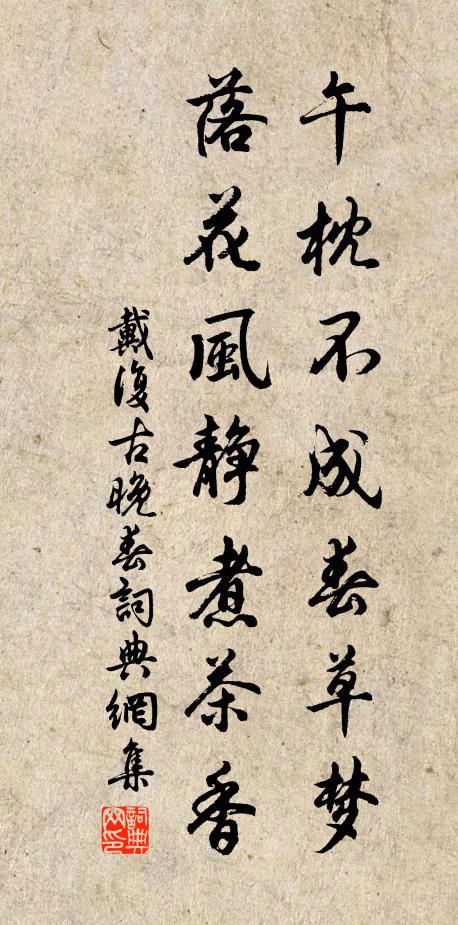 午枕不成春草梦
落花風静煮茶香
戴復古晚春詞典網集
詞典网印